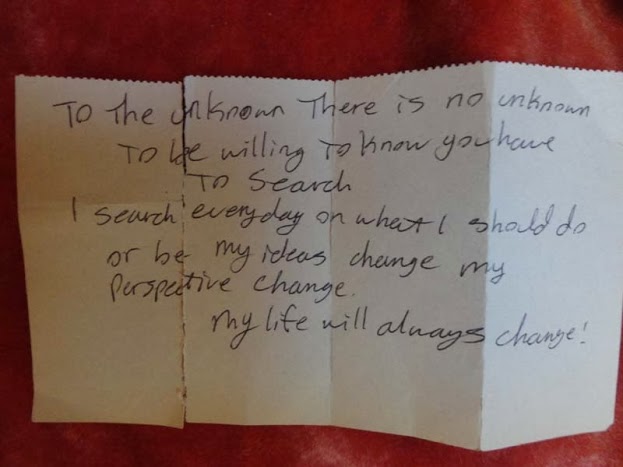 To The unknown There is no unknown
To be willing To know you have
To Search
I search everyday on what I should do
or be my ideas change my
perspective change.
my life will always change!